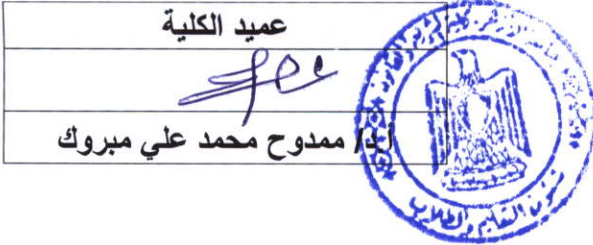 عميد الكلية
أ.د/ ممدوح محمد علي مبروك
شئون التعليم والطلاب